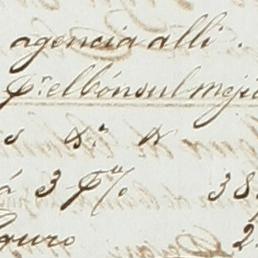 agencia alli.
Pr. el Cónsul meji
s &a. &
á 3 P% 38
guro 2